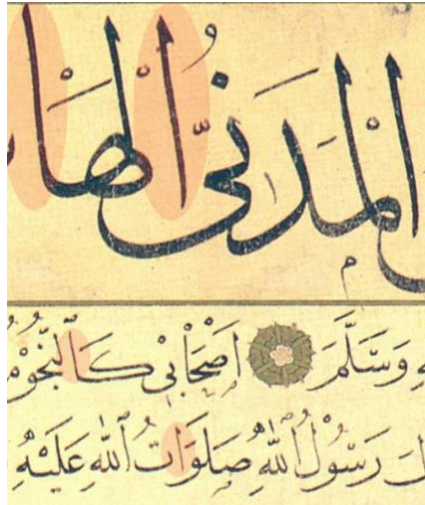 المَدَنِيُّ الهَا
وَسَلَّمَ اَصْحَابِي كَالنُّجُوْمِ
رَسُوْلُ اللّٰهِ صَلَوَاتُ اللّٰهِ عَلَيْهِ